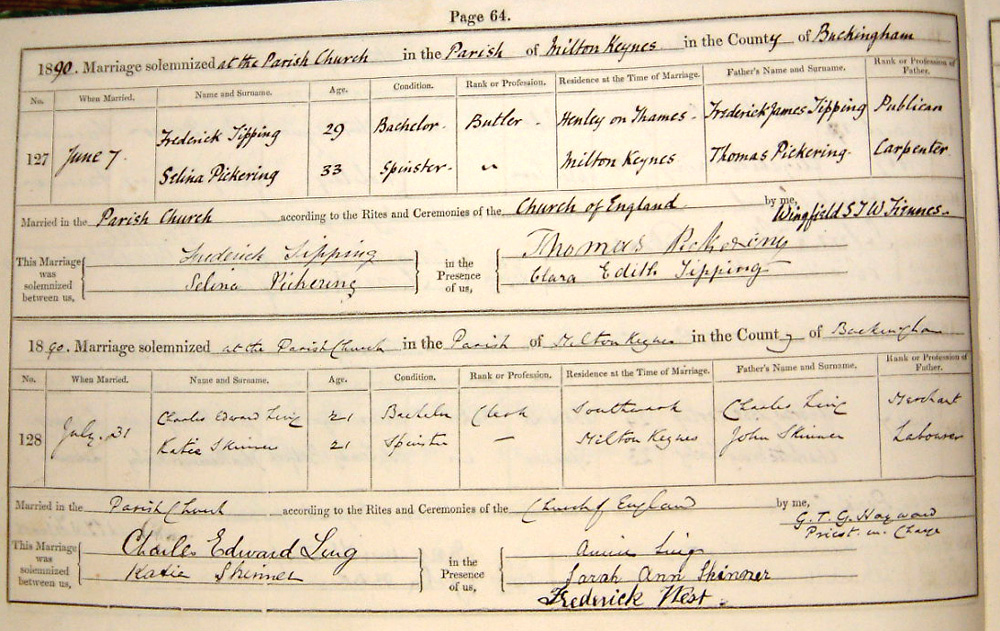 Page 64.
1890. Marriage solemnized at the Parish Church in the Parish of Milton Keynes in the County of Buckingham
No. When Married. Name and Surname. Age. Condition. Rank or Profession. Residence at the Time of Marriage. Father's Name and Surname. Rank or Profession of Father.
Frederick Tipping 29 Bachelor. Butler. Henley on Thames. Frederick James Tipping Publican
127 June 7.
Selina Pickering 33 Spinster. " Milton Keynes Thomas Pickering. Carpenter
Married in the Parish Church according to the Rites and Ceremonies of the Church of England by me, Wingfield S T W
This Marriage was solemnized between us, Frederick Tipping in the Presence of us, Thomas Pickering
Selina Pickering Clara Edith Tipping
1890. Marriage solemnized at the Parish Church in the Parish of Milton Keynes in the County of Buckingham
No. When Married. Name and Surname. Age. Condition. Rank or Profession. Residence at the Time of Marriage. Father's Name and Surname. Rank or Profession of Father.
Charles Edward Ling 21 Bachelor Clerk Southwark Charles Ling Merchant
128 July. 31
Katie Skinner 21 Spinster — Milton Keynes John Skinner Labourer
Married in the Parish Church according to the Rites and Ceremonies of the Church of England by me, G. T. G. Hayward
Priest in Charge
This Marriage was solemnized between us, Charles Edward Ling in the Presence of us, Annie Ling
Katie Skinner Sarah Ann Skinner
Frederick West.